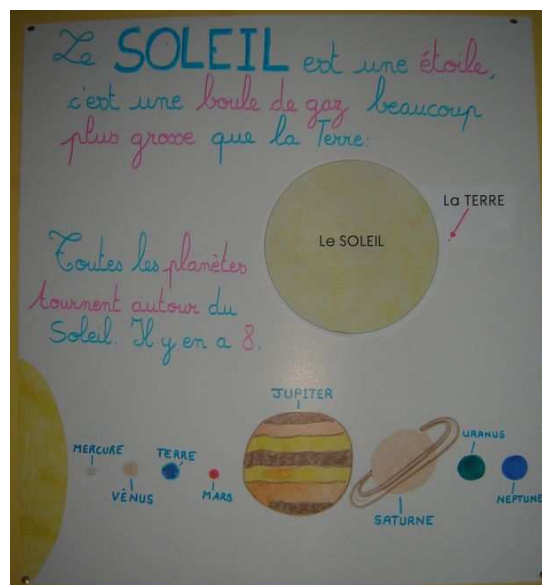 Le SOLEIL est une étoile,
c'est une boule de gaz beaucoup
plus grosse que la Terre:
La TERRE
Le SOLEIL
Toutes les planètes
tournent autour du
Soleil. Il y en a 8.
JUPITER
MERCURE
VÈNUS
TERRE
MARS
SATURNE
URANUS
NEPTUNE